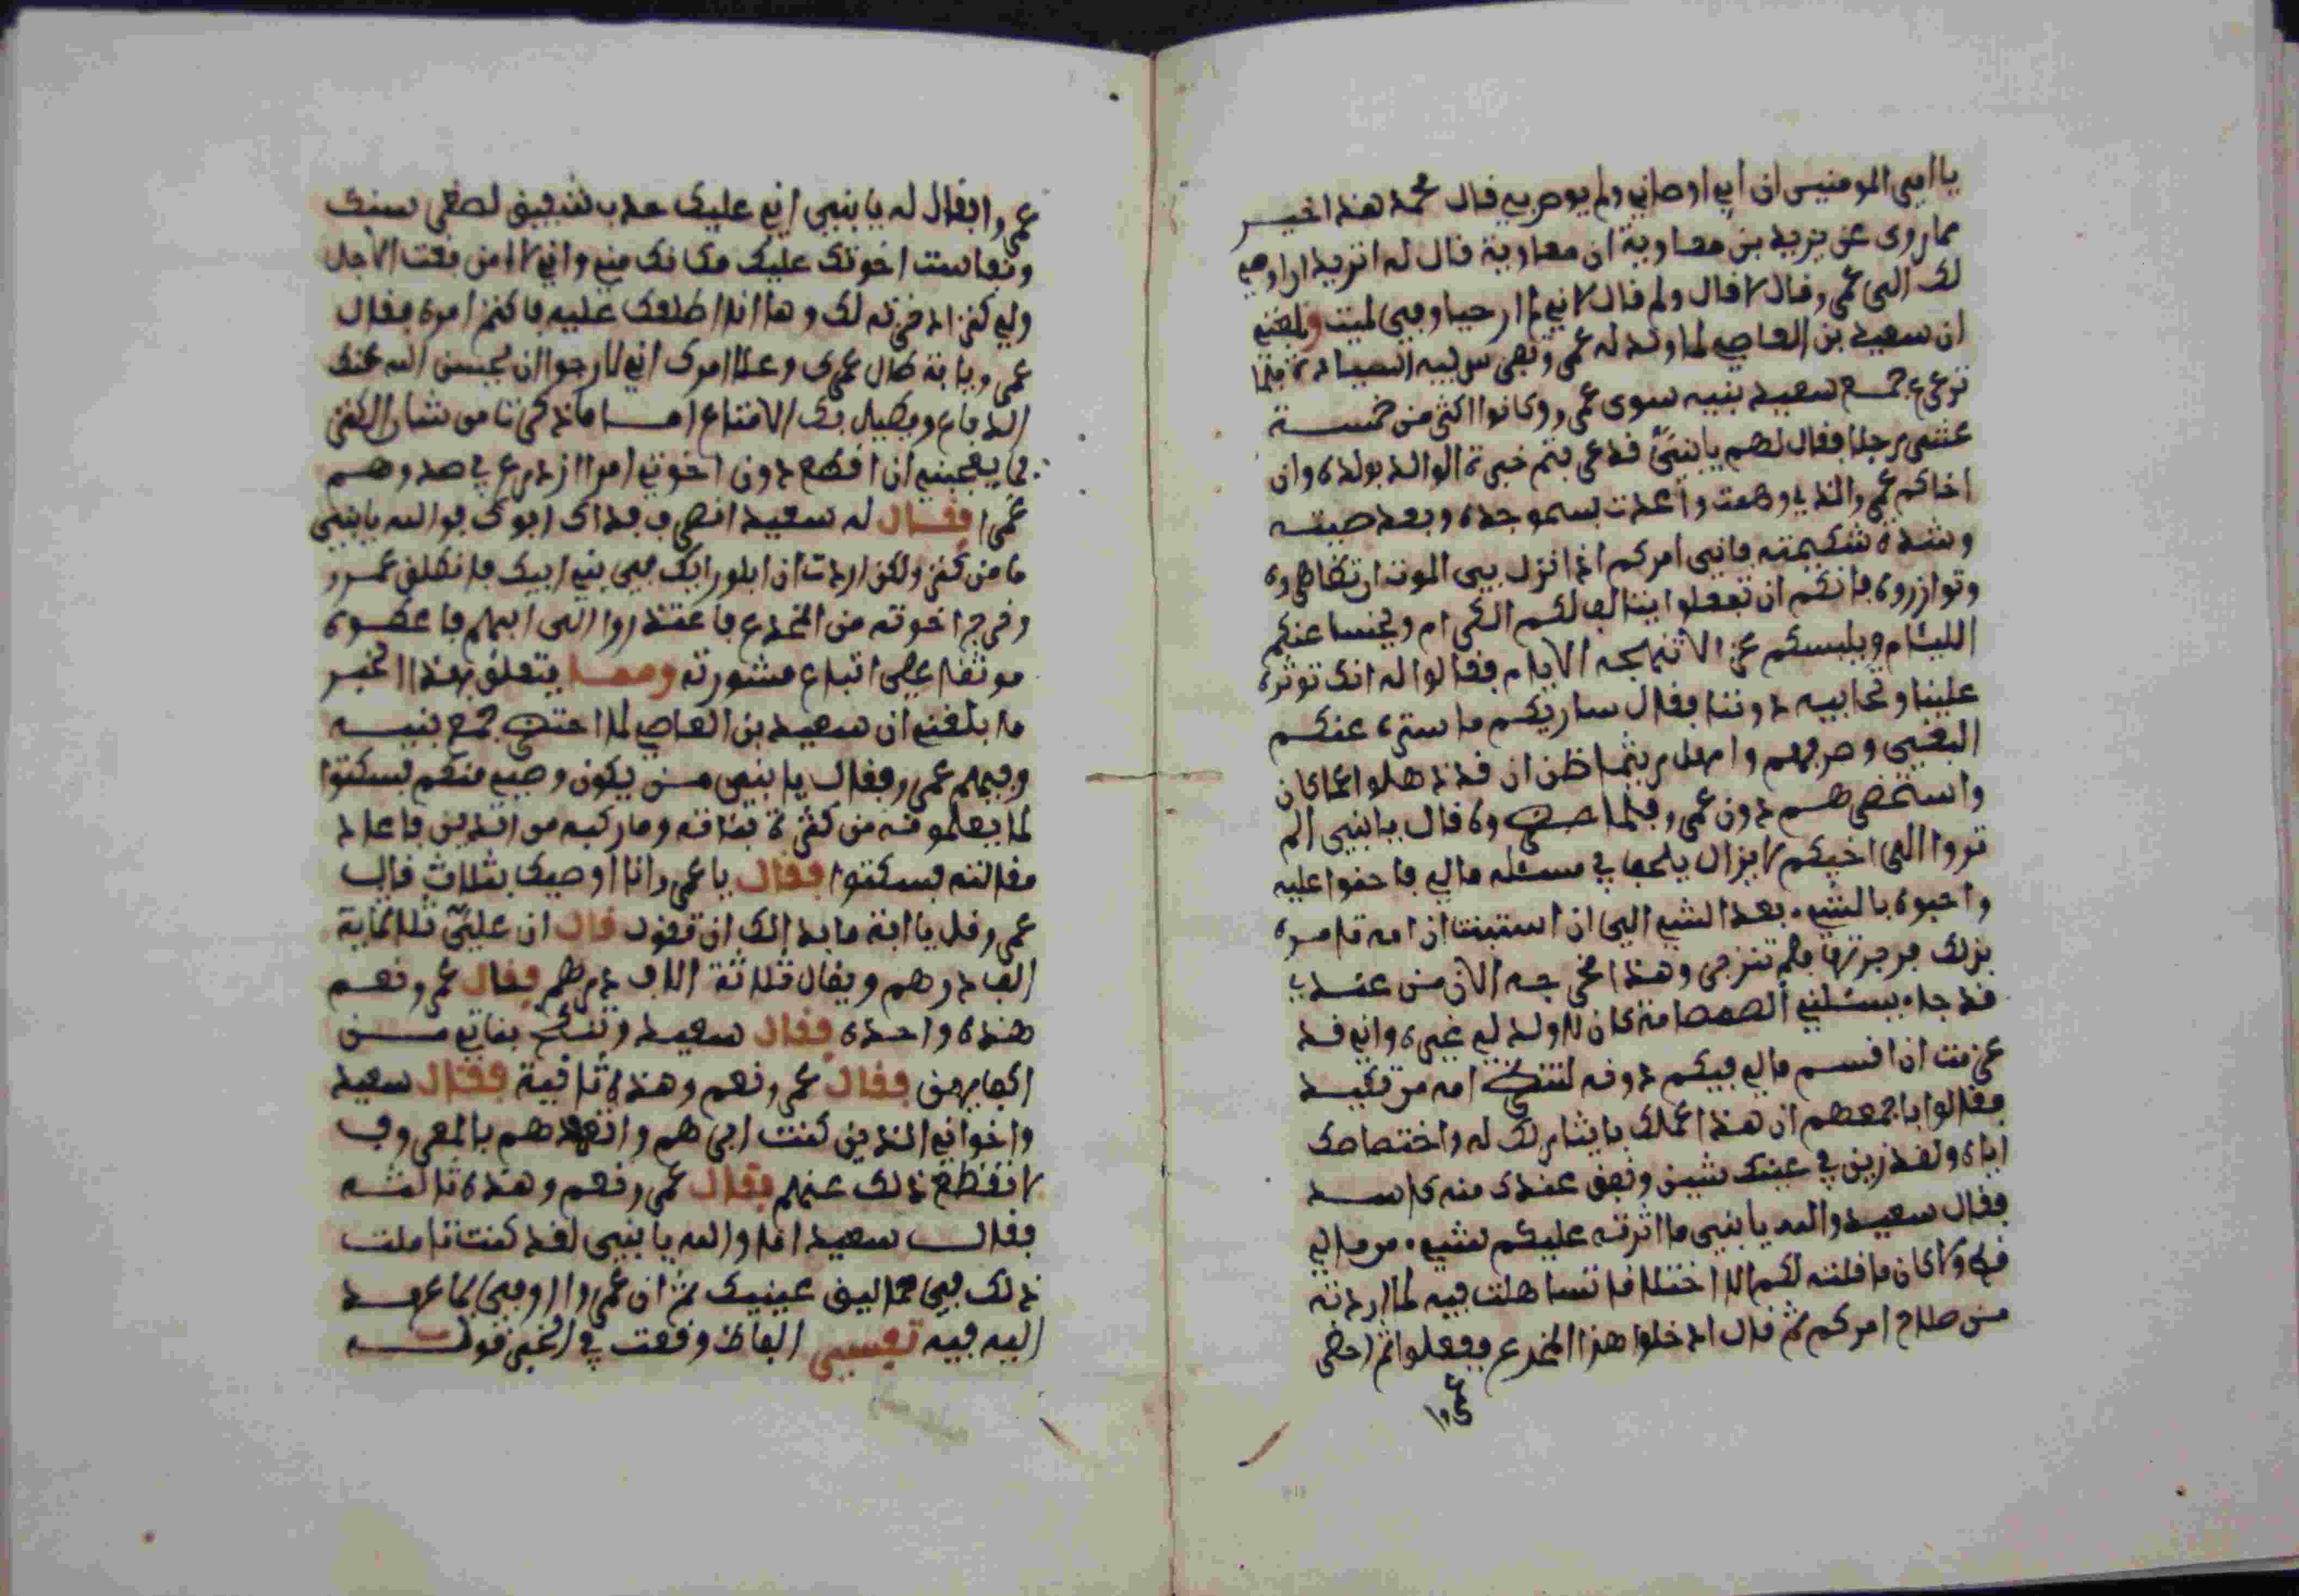 يا امير المومنين ان ابي اوصاني ولم يوص بي قال محمد هذا اخبر
مما روى عن يزيد بن معاوية ان معاوية قال له اتريد ان اوصي
لك الى عمرو قال لا قال ولم قال لاني لم ار حيا وفى لميت وبلغني
ان سعيد بن العاصي لما ولد له عمرو تفرس فيه السيادة فلما
ترعرع جمع سعيد بنيه سوى عمرو وكانوا اكثر من خمسة
عشر رجلا فقال لهم يا بني قد عرفتم خبرة الوالد بولده وان
اخاكم عمرو الذي وصفت واعدت بسمو جده وبعد صيته
وشدة شكيمته فانى امركم اذا نزل بي الموت ان تظاهروه
وتوازروه فانكم ان تفعلوا يتالف لكم الكرام ويخسا عنكم
الليام ويلبسكم عزا لا تنهجه الايام فقالوا له انك توثره
علينا وتحابيه دوننا فقال ساريكم ما ستره عنكم
البغي وصرفهم وامهل ريثما ظن ان قد ذهلوا عما كان
واستحضرهم دون عمرو فلما حضروه قال يا بني الم
تروا الى اخيكم لا يزال يلحف في مسئله مالي فاحنوا عليه
واحبوه بالشيء بعد الشيء الى ان استبنت ان امه تامره
بذلك فزجرتها فلم تنزجر وهذا مخرجه الان من عندي
قد جاء يسئلني الصمصامة كان لا ولد لي غيره واني قد
عزمت ان اقسم مالي فيكم دونه لتشكر امه من تكيد
فقالوا باجمعهم ان هذا عملك بايثارك له واختصاصك
اياه ولقد زين في عينك شين ونفق عندك منه كاسد
فقال سعيد والله يا بني ما اثرته عليكم بشيء من مالي
قط ولا كان ما قلته لكم الا اختلاقا تساهلت فيه لما اردته
من صلاح امركم ثم قال ادخلوا هذا المخدع ففعلوا ثم احضر
عمرا فقال له يا بني اني عليك حدب شفيق لصغر سنك
ونفاست اخوتك عليك مكانك مني واني لا امن بغت الاجل
ولي كنز ادخرته لك وها انا اطلعك عليه فاكتم امره فقال
عمرو يا ابة طال عمرك وعلا امرك اني لارجوا ان يحسن الله عنك
الدفاع ويطيل بك الامتاع اما ما ذكرت من شان الكنز
فما يعجبني ان اقطع دون اخوتي امرا ازدرع في صدورهم
غمرا فقال له سعيد انصرف فداك ابوك فوالله يا بني
ما من كنز ولكن اردت ان ابلو رايك في بني ابيك فانطلق عمرو
وخرج اخوته من المخدع فاعتذروا الى ابيهم فاعطوه
موثقا على اتباع مشورته ومما يتعلق بهذا الخبر
ما بلغني ان سعيد بن العاصي لما احتضر جمع بنيه
وفيهم عمرو فقال يا بني من يكون وصيي منكم فسكتوا
لما يعلمونه من كثرة بناته وما ركبه من الدين فاعاد
مقالته فسكتوا فقال يا عمرو انا اوصيك بثلاث قال
عمرو قل يا ابة ما بدا لك ان تقول قال ان علي ثلاثماية
الف درهم ويقال ثلاثة الاف درهم فقال عمرو نعم
هذه واحدة فقال سعيد وتنكح بناتي من
اكفايهن فقال عمرو نعم وهذه ثانية فقال سعيد
واخواني الذين كنت ابرهم واتعهدهم بالمعروف
لا تقطع ذلك عنهم فقال عمرو نعم وهذه ثالثه
فقال سعيد اما والله يا بني لقد كنت تاملت
ذلك في حماليق عينيك ثم ان عمروا اوفى بما عهد
اليه فيه تفسير الفاظ وقعت في الخبر قوله